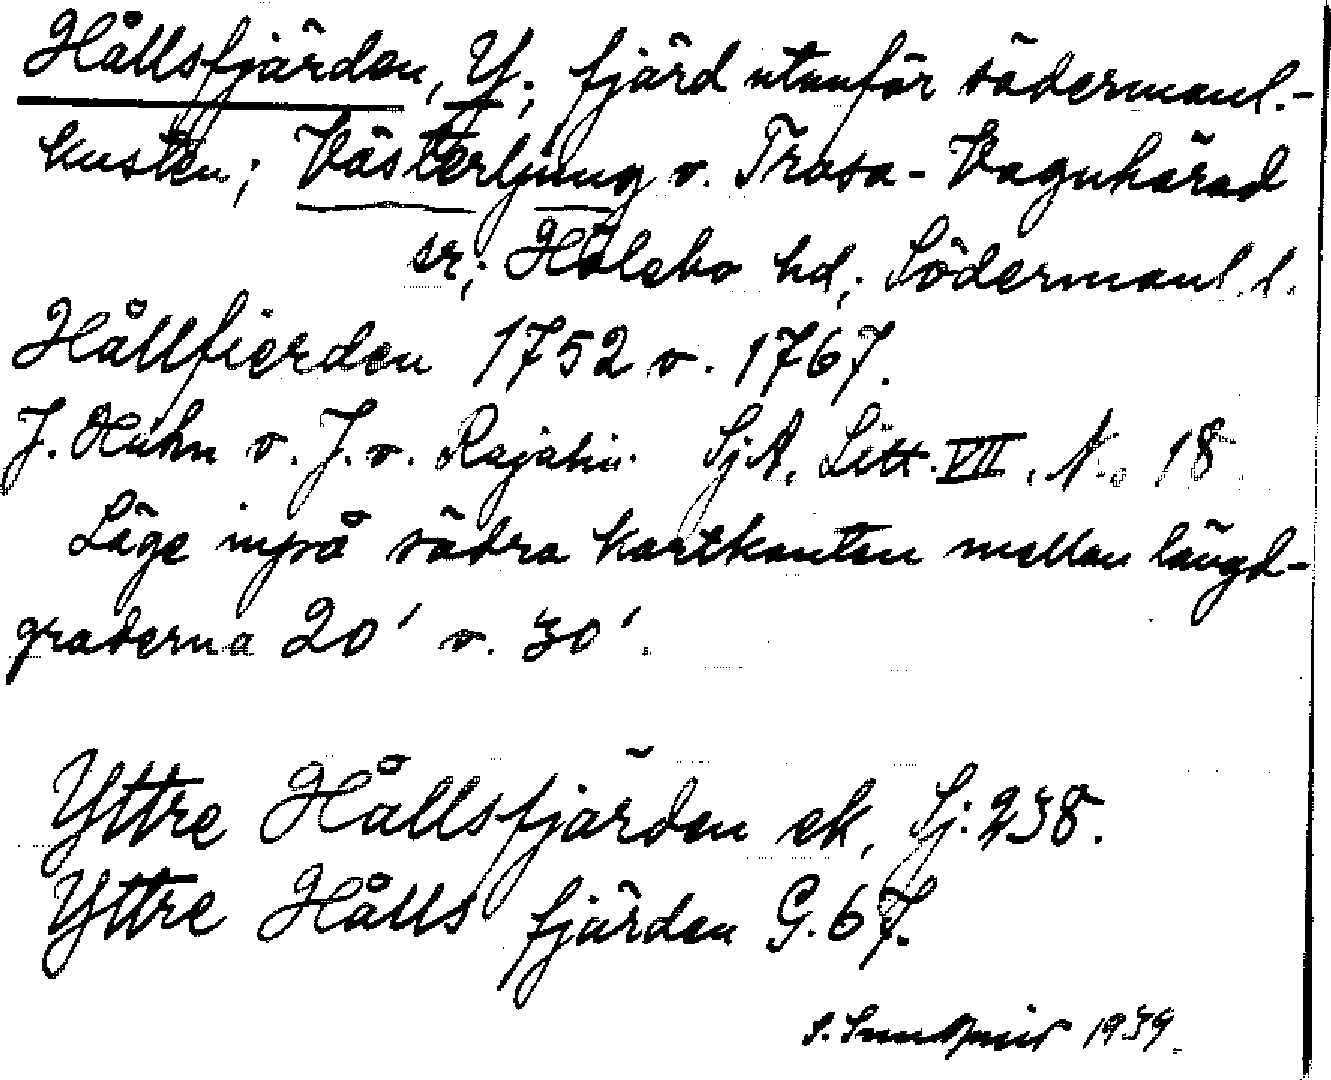 Hållsfjärden, Y.; fjärd utanför södermanl.-
kusten; Västerljung o. Trosa-Vagnhärad
sr; Hölebo hd; Södermanl. l.
Hållfierden 1752 o. 1767.
J. Hahn o. J. v. Rajalin. SjA, Litt. VII, No 18
Läge invpå södra kartkanten mellan längd-
graderna 20' o. 30'.
Yttre Hållsfjärden ek, Sj: 238.
Yttre Hålls fjärden G. 67.
S. 1939.